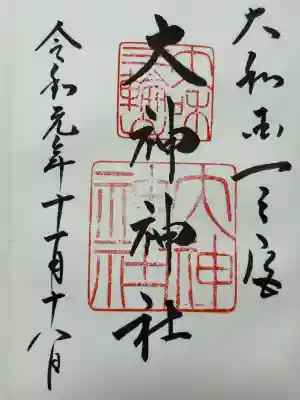 大和国一之宮
大神神社
令和元年十一月十八日
三輪
大神
神社